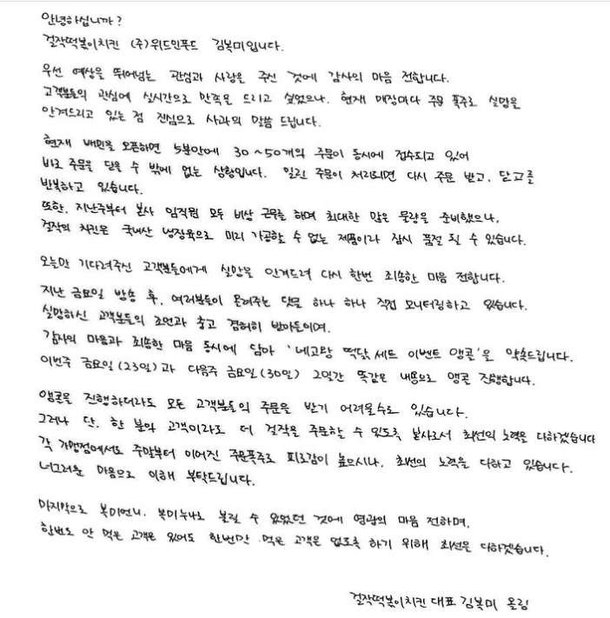 안녕하십니까?
걸작떡볶이치킨 (주)위드인푸드 김복미입니다.
우선 예상을 뛰어넘는 관심과 사랑을 주신 것에 감사의 마음 전합니다.
고객분들의 관심에 실시간으로 만족을 드리고 싶었으나, 현재 매장마다 주문 폭주로 실망을
안겨드리고 있는 점 진심으로 사과의 말씀 드립니다.
현재 배민을 오픈하면 5분안에 30~50개의 주문이 동시에 접수되고 있어
바로 주문을 닫을 수 밖에 없는 상황입니다. 밀린 주문이 처리되면 다시 주문 받고, 닫고를
반복하고 있습니다.
또한, 지난주부터 본사 임직원 모두 비상 근무를 하며 최대한 많은 물량을 준비했으나,
걸작의 치킨은 국내산 냉장육으로 미리 가공할 수 없는 제품이라 잠시 품절 될 수 있습니다.
오늘만 기다려주신 고객분들에게 실망을 안겨드려 다시 한번 죄송한 마음 전합니다.
지난 금요일 방송 후, 여러분들이 올려주는 댓글 하나 하나 직접 모니터링하고 있습니다.
실망하신 고객분들의 조언과 충고 겸허히 받아들이며,
감사의 마음과 죄송한 마음 동시에 담아 '네고왕 떡닭 세트 이벤트 앵콜'을 약속드립니다.
이번주 금요일(23일)과 다음주 금요일(30일) 2일간 똑같은 내용으로 앵콜 진행합니다.
앵콜을 진행하더라도 모든 고객분들의 주문을 받기 어려울수도 있습니다.
그러나 단, 한 분의 고객이라도 더 걸작을 주문할 수 있도록 본사로서 최선의 노력을 다하겠습니다
각 가맹점에서도 주말부터 이어진 주문폭주로 피로감이 높으시나, 최선의 노력을 다하고 있습니다.
너그러운 마음으로 이해 부탁드립니다.
마지막으로 복미언니, 복미누나로 불릴 수 있었던 것에 영광의 마음 전하며,
한번도 안 먹은 고객은 있어도 한번만 먹은 고객은 없도록 하기 위해 최선을 다하겠습니다.
걸작떡볶이치킨 대표 김복미 올림